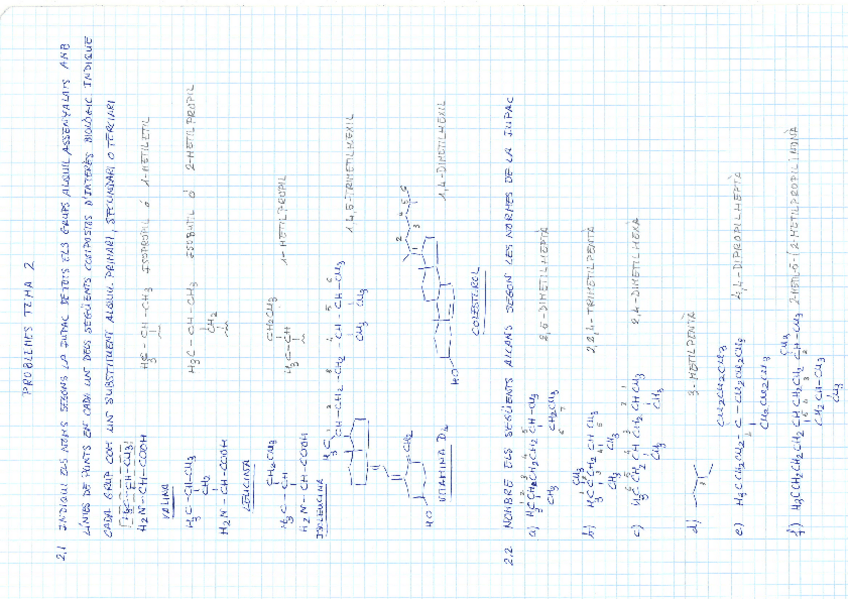 PROBLEMES TEMA 2
2.1 INDIQUI ELS NOMS SEGONS LA IUPAC DE TOTS ELS GRUPS ALQUIL ASSENYALATS AMB
LÍNIES DE PUNTS EN CADA UN DELS SEGÜENTS COMPOSTOS D'INTERÈS BIOLÒGIC. INDIQUE
CADA GRUP COM UN SUBSTITUENT ALQUIL PRIMARI, SECUNDARI O TERCIARI
H3C-CH-CH3
H2N-CH-COOH
VALINA
H3C-CH-CH3 ISOPROPIL ó 1-METILETIL
H3C-CH-CH3
CH2
H2N-CH-COOH
LEUCINA
H3C-CH-CH3
CH2
ISOBUTIL ó 2-METILPROPIL
CH2CH3
H3C-CH
H2N-CH-COOH
ISOLEUCINA
CH2CH3
H3C-CH
1-METILPROPIL
H3C
CH-CH2-CH2-CH-CH-CH3
CH3 CH3
1,4,5-TRIMETILHEXIL
HO
CH2
VITAMINA D2
HO
COLESTEROL
1,4-DIMETILHEXIL
2.2 NOMBRE ELS SEGÜENTS ALCANS SEGON LES NORMES DE LA IUPAC
a) H3CCHCH2CH2CH2CH-CH3
CH3 CH2CH3
2,6-DIMETILHEPTÀ
b) CH3
H3C C CH2 CH CH3
CH3 CH3
2,2,4-TRIMETILPENTÀ
c) H3C CH2 CH CH2 CH CH3
CH3 CH3
2,4-DIMETILHEXÀ
d) 3-METILPENTÀ
e) CH2CH2CH3
H3C CH2CH2-C-CH2CH2CH3
CH2CH2CH3
4,4-DIPROPILHEPTÀ
f) CH3
H3CCH2CH2CH2 CH CH2CH2 CH-CH3
CH2CH-CH3
CH3
2-METIL-5-(2-METILPROPIL)NONÀ